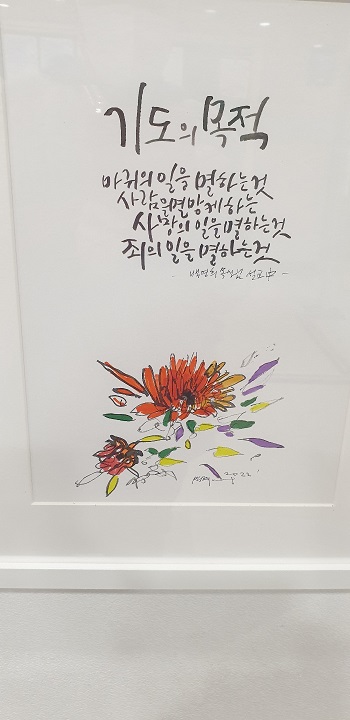 기도의 목적
마귀의 일을 멸하는것
사람을멸망케하는
사탕의 일을멸하는것
죄의 일을 멸하는것
목사님 설교中-
2022